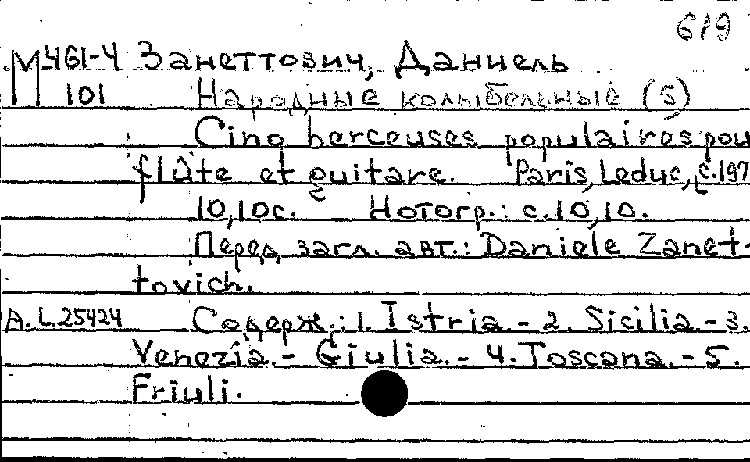 619
М461-4 Занеттович, Даниель
101 Народные колыбельные (5)
Cinq berceuses populaires pou
flûte et guitare. Paris, Leduc, c.197
10,10с. Нотогр.: с.10,10.
Перед загл. авт.: Daniele Zanet-
tovich.
A.L.25424 Содерж.: 1. Istria. - 2. Sicilia. - 3.
Venezia. - Giulia. - 4. Toscana. - 5.
Friuli.